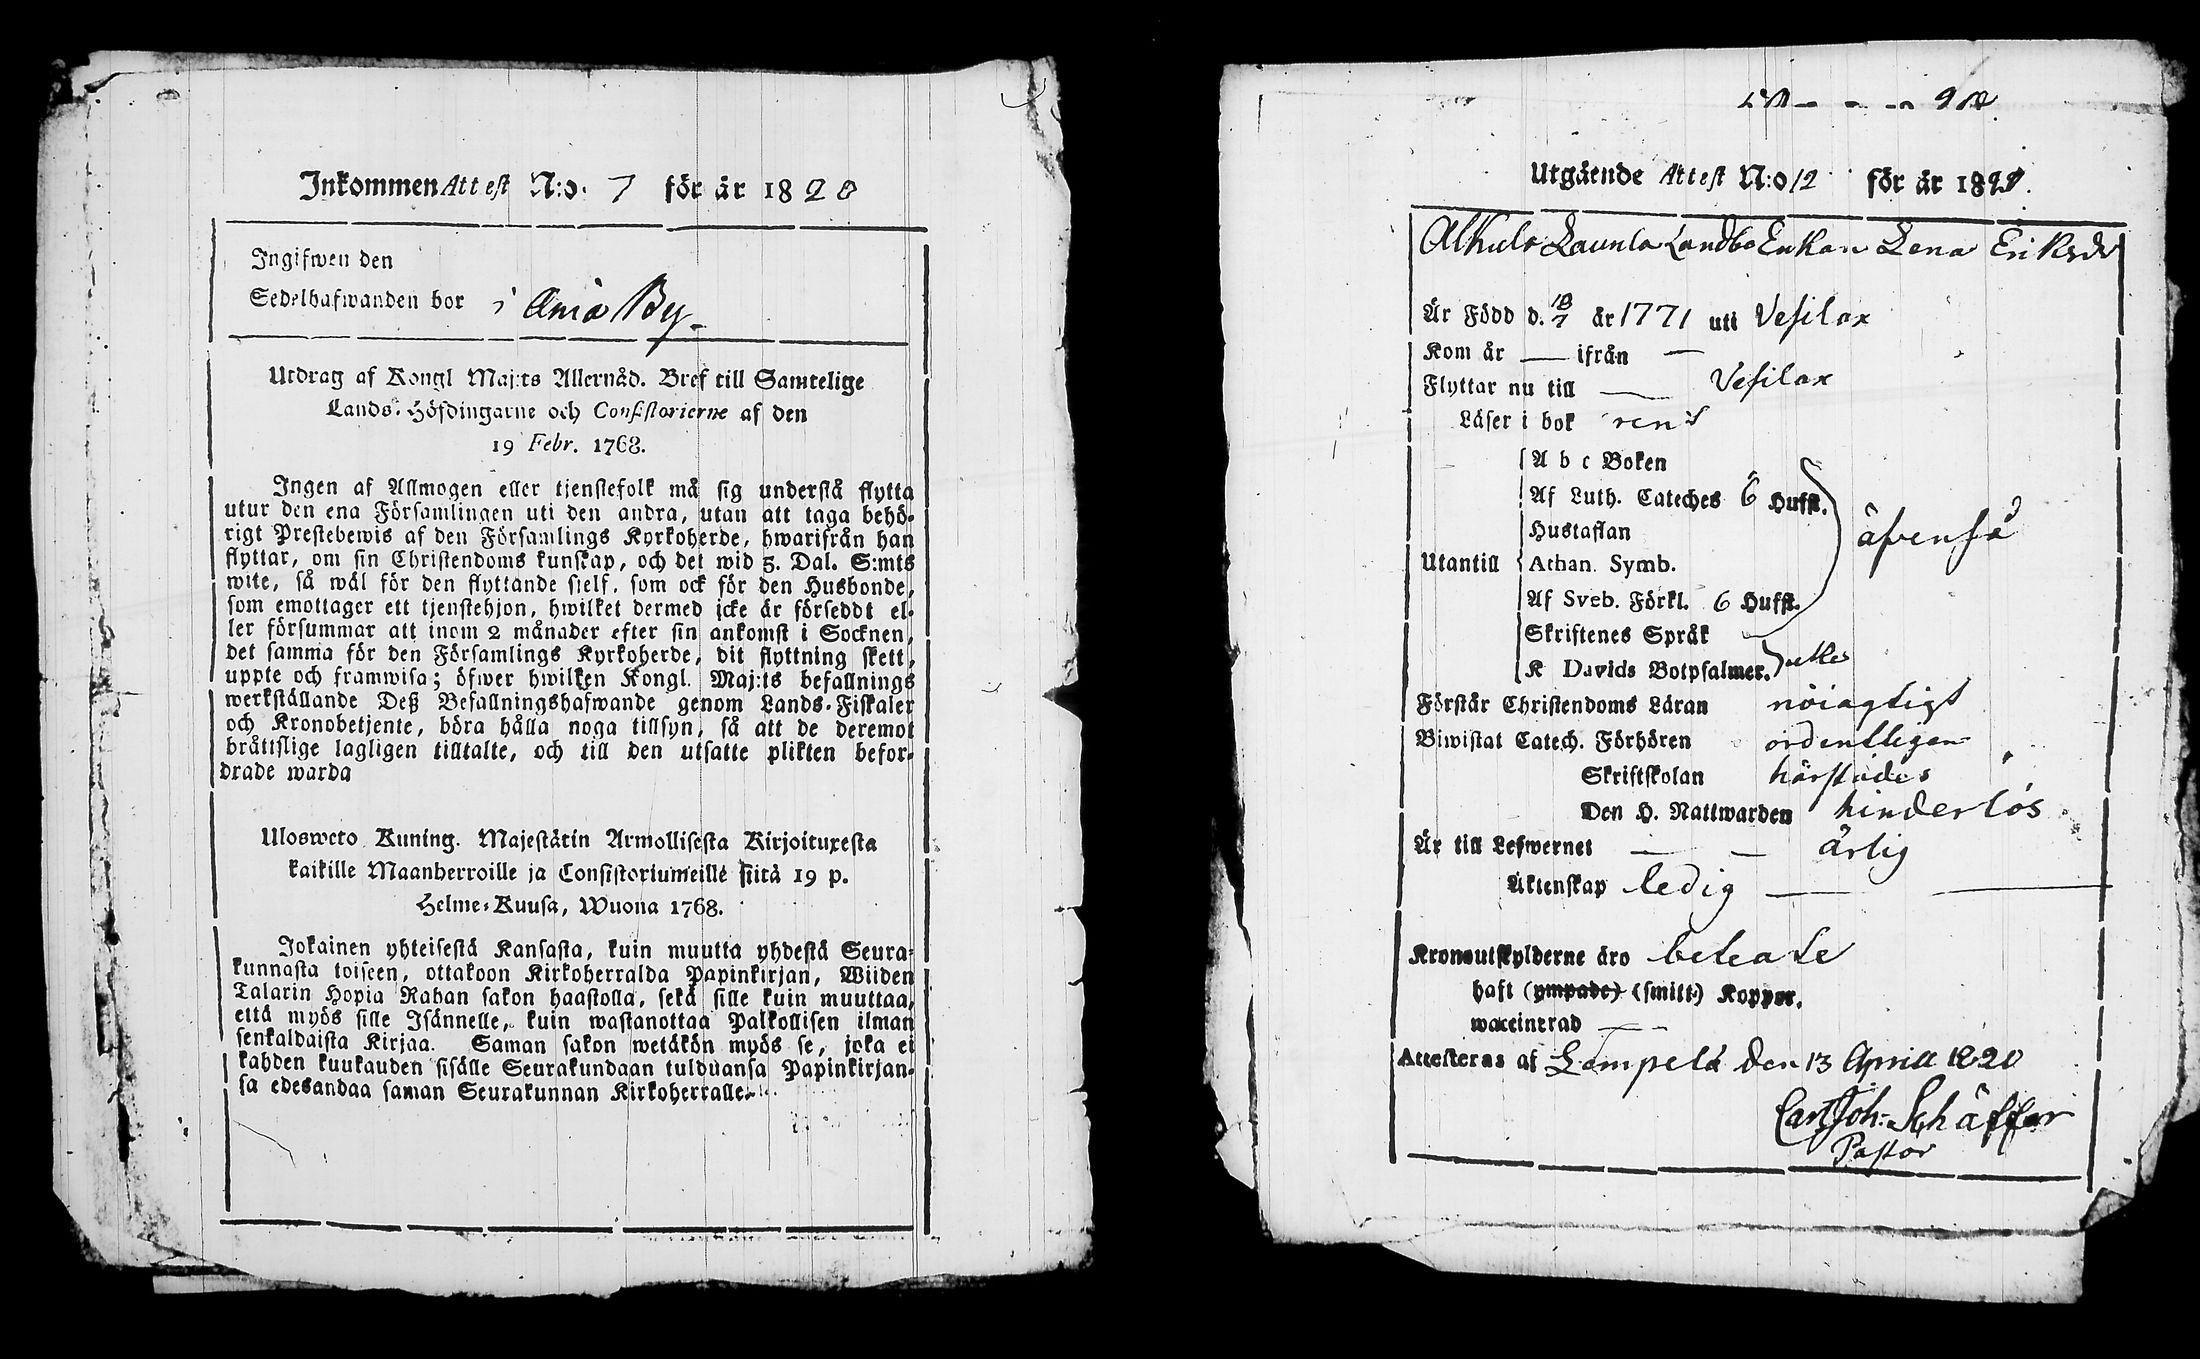 Inkommen Attest N:o. 7 för år 1820
Ingifwen den
Sedelhafwanden bor i Ania By.
Utdrag af Kongl Maj:ts Allernåd. Bref till Samtelige
Lands-Höfdingarne och Consistorierne af den
19 Febr. 1768.
Ingen af Allmogen eller tjenstefolk må sig understå flytta
utur den ena Församlingen uti den andra, utan att taga behö-
rigt Prestebewis af den Församlings Kyrkoherde, hwarifrån han
flyttar, om sin Christendoms kunskap, och det wid 5. Dal. S:mts
wite, så wäl för den flyttande sielf, som ock för den Husbonde,
som emottager ett tjenstehjon, hwilket dermed icke är försedt el-
ler försummar att inom 2 månader efter sin ankomst i Socknen,
det samma för den Församlings Kyrkoherde, dit flyttning skett,
uppte och framwisa; öfwer hwilken Kongl. Maj:ts befallnings
werkställande Deß Befallningshafwande genom Lands-Fiskaler
och Kronobetjente, böra hålla noga tillsyn, så att de deremot
bråttslige lagligen tilltalte, och till den utsatte plikten befor-
drade warda
Ulosweto Kuning. Majestätin Armollisesta Kirjoituxesta
kaikille Maanherroille ja Consistoriumeille siitä 19 p.
Helme-Kuusa, Wuona 1768.
Jokainen yhteisestä Kansasta, kuin muutta yhdestä Seura-
kunnasta toiseen, ottakoon Kirkoherralda Papinkirjan, Wiiden
Talarin Hopia Rahan sakon haastolla, sekä sille kuin muuttaa,
että myös sille Isännelle, kuin wastanottaa Palkollisen ilman
senkaldaista Kirjaa. Saman sakon wetäkön myös se, joka ei
kahden kuukauden sisälle Seurakundaan tulduansa Papinkirjan-
sa edesandaa saman Seurakunnan Kirkoherralle.
Utgående Attest N:o 12 för år 1820.
Laurila Landbo Enkan Lena Eriksdr
Är Född d. 18/7 år 1771 uti Vesilax
Kom år — ifrån —
Flyttar nu till — Vesilax
Läser i bok rent
A b c Boken
Af Luth. Cateches 6 Hufst.
Hustaflan
äfvenså
Utantill Athan. Symb.
Af Sveb. Förkl. 6 Hufst.
Skriftenes Språk
K Davids Botpsalmer.
Förstår Christendoms Läran nöiagtigt
Biwistat Catech. Förhören ordentligen
Skriftskolan härstädes
Den H. Nattwarden hinderlös
Är till Lefwernet — — ärlig
Äktenskap ledig —
Kronoutskylderne äro betalte
haft (ympade) (smitt.) Koppor.
waccinerad —
Attesteras af Lempelä den 13 Aprill 1820
Carl Joh: Schäffer
Pastor